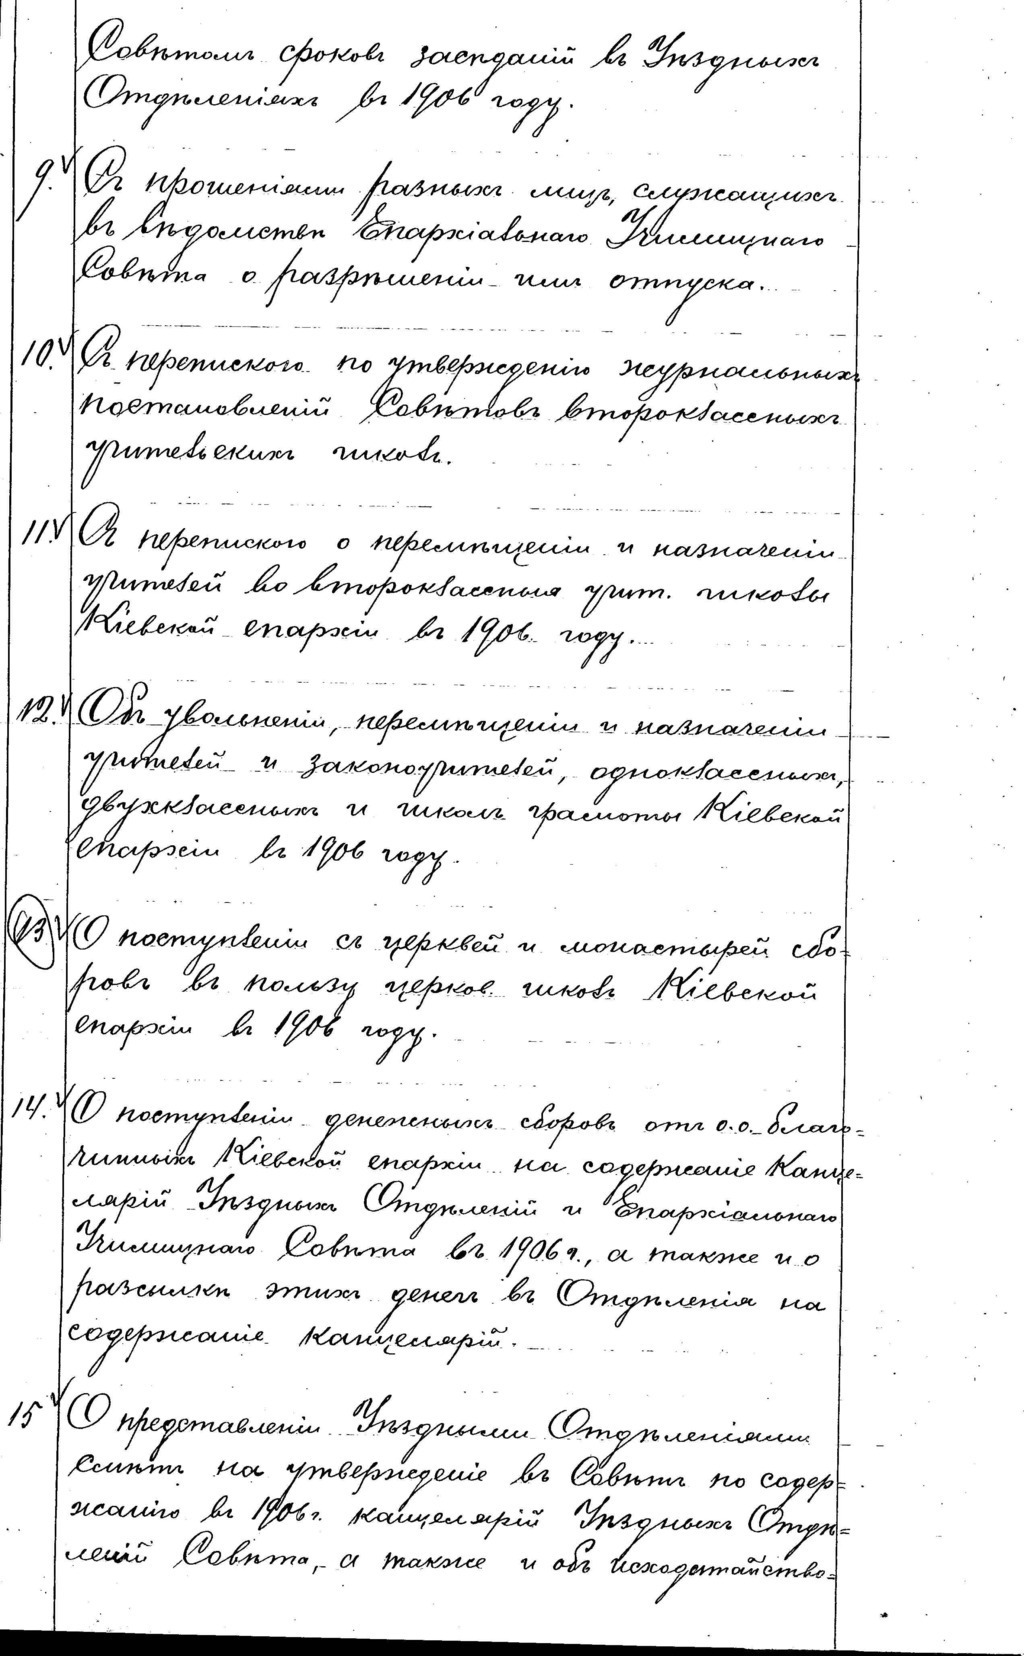 Совѣтомъ сроковъ засѣданій въ Уѣздныхъ
Отдѣленіяхъ въ 1906 году.
9. Съ прошеніями разныхъ лицъ, служащихъ
въ вѣдомствѣ Епархіальнаго Училищнаго
Совѣта о разрѣшеніи имъ отпуска.
10. Съ перепискою по утвержденію журнальныхъ
постановленій Совѣтовъ второклассныхъ
учительскихъ школъ.
11. Съ перепискою о перемѣщеніи и назначеніи
учителей во второклассныя учит. школы
Кіевской епархіи въ 1906 году.
12. Объ увольненіи, перемѣщеніи и назначеніи
учителей и законоучителей, одноклассныхъ,
двухклассныхъ и школъ грамоты Кіевской
епархіи въ 1906 году.
13. О поступленіи съ церквей и монастырей сбо-
ровъ въ пользу церков. школъ Кіевской
епархіи въ 1906 году.
14. О поступленіи денежныхъ сборовъ отъ о.о. благо=
чинныхъ Кіевской епархіи на содержаніе Канце=
лярій Уѣздныхъ Отдѣленій и Епархіальнаго
Училищнаго Совѣта въ 1906 г., а также и о
разсылкѣ этихъ денегъ въ Отдѣленія на
содержаніе канцелярій.
15 О представленіи Уѣздными Отдѣленіями
смѣтъ на утвержденіе въ Совѣтъ по содер=
жанію въ 1906 г. канцелярій Уѣздныхъ Отдѣ=
леній Совѣта, а также и объ исходатайство=